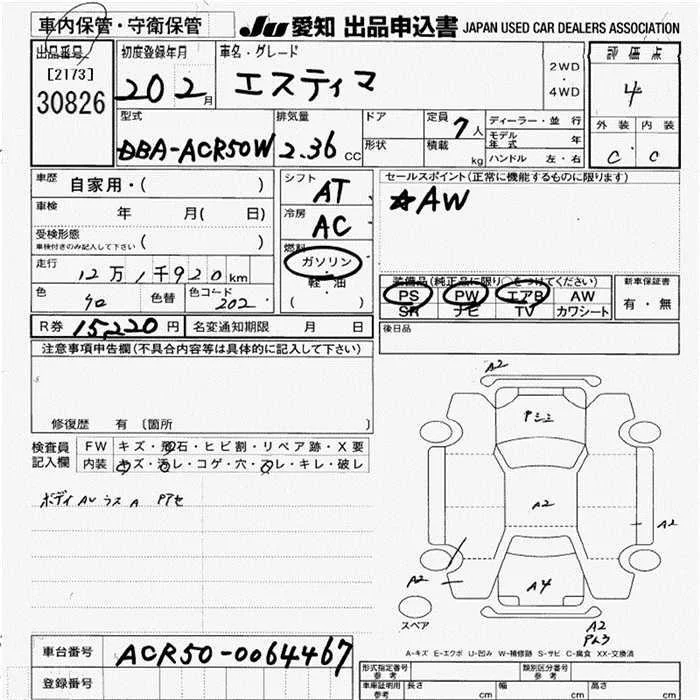 車内保管・守衛保管
JU 愛知 出品申込書 JAPAN USED CAR DEALERS ASSOCIATION
出品番号
[2173]
30826
初度登録年月
20 2月
車名・グレード
エスティマ
2WD
・
4WD
評価点
4
外装 内装
C C
型式
DBA-ACR50W
排気量
2.36 CC
ドア
形状
定員 7人
積載 kg
ディーラー・並行
モデル年式 年
ハンドル 左・右
車歴 自家用・( )
車検 年 月( 日)
受検形態
車検付きのみ記入して下さい ( )
走行 12万1千920km
色 色替 色コード 202
シフト AT
冷房 AC
燃料
ガソリン
・
軽油
( )
セールスポイント(正常に機能するものに限ります)
☆AW
装備品(純正品に限り○をつけてください)
PS PW エアB AW
SR ナビ TV カワシート
新車保証書
有・無
R券 15,220円 名変通知期限 月 日
後日品
注意事項申告欄(不具合内容等は具体的に記入して下さい)
修復歴 有〔箇所 〕
検査員記入欄
FW キズ・飛石・ヒビ割・リペア跡・X要
内装 キズ・汚レ・コゲ・穴・スレ・キレ・破レ
ボディ
A2
A2
A2
A2
A4
A2
スペア
A-キズ E-エクボ U-凹み W-補修跡 S-サビ C-腐食 XX-交換済
車台番号 ACR50-0064467
登録番号
型式指定番号 参考
類別区分番号 参考
車庫証明用 参考 長さ cm 幅 cm 高さ cm